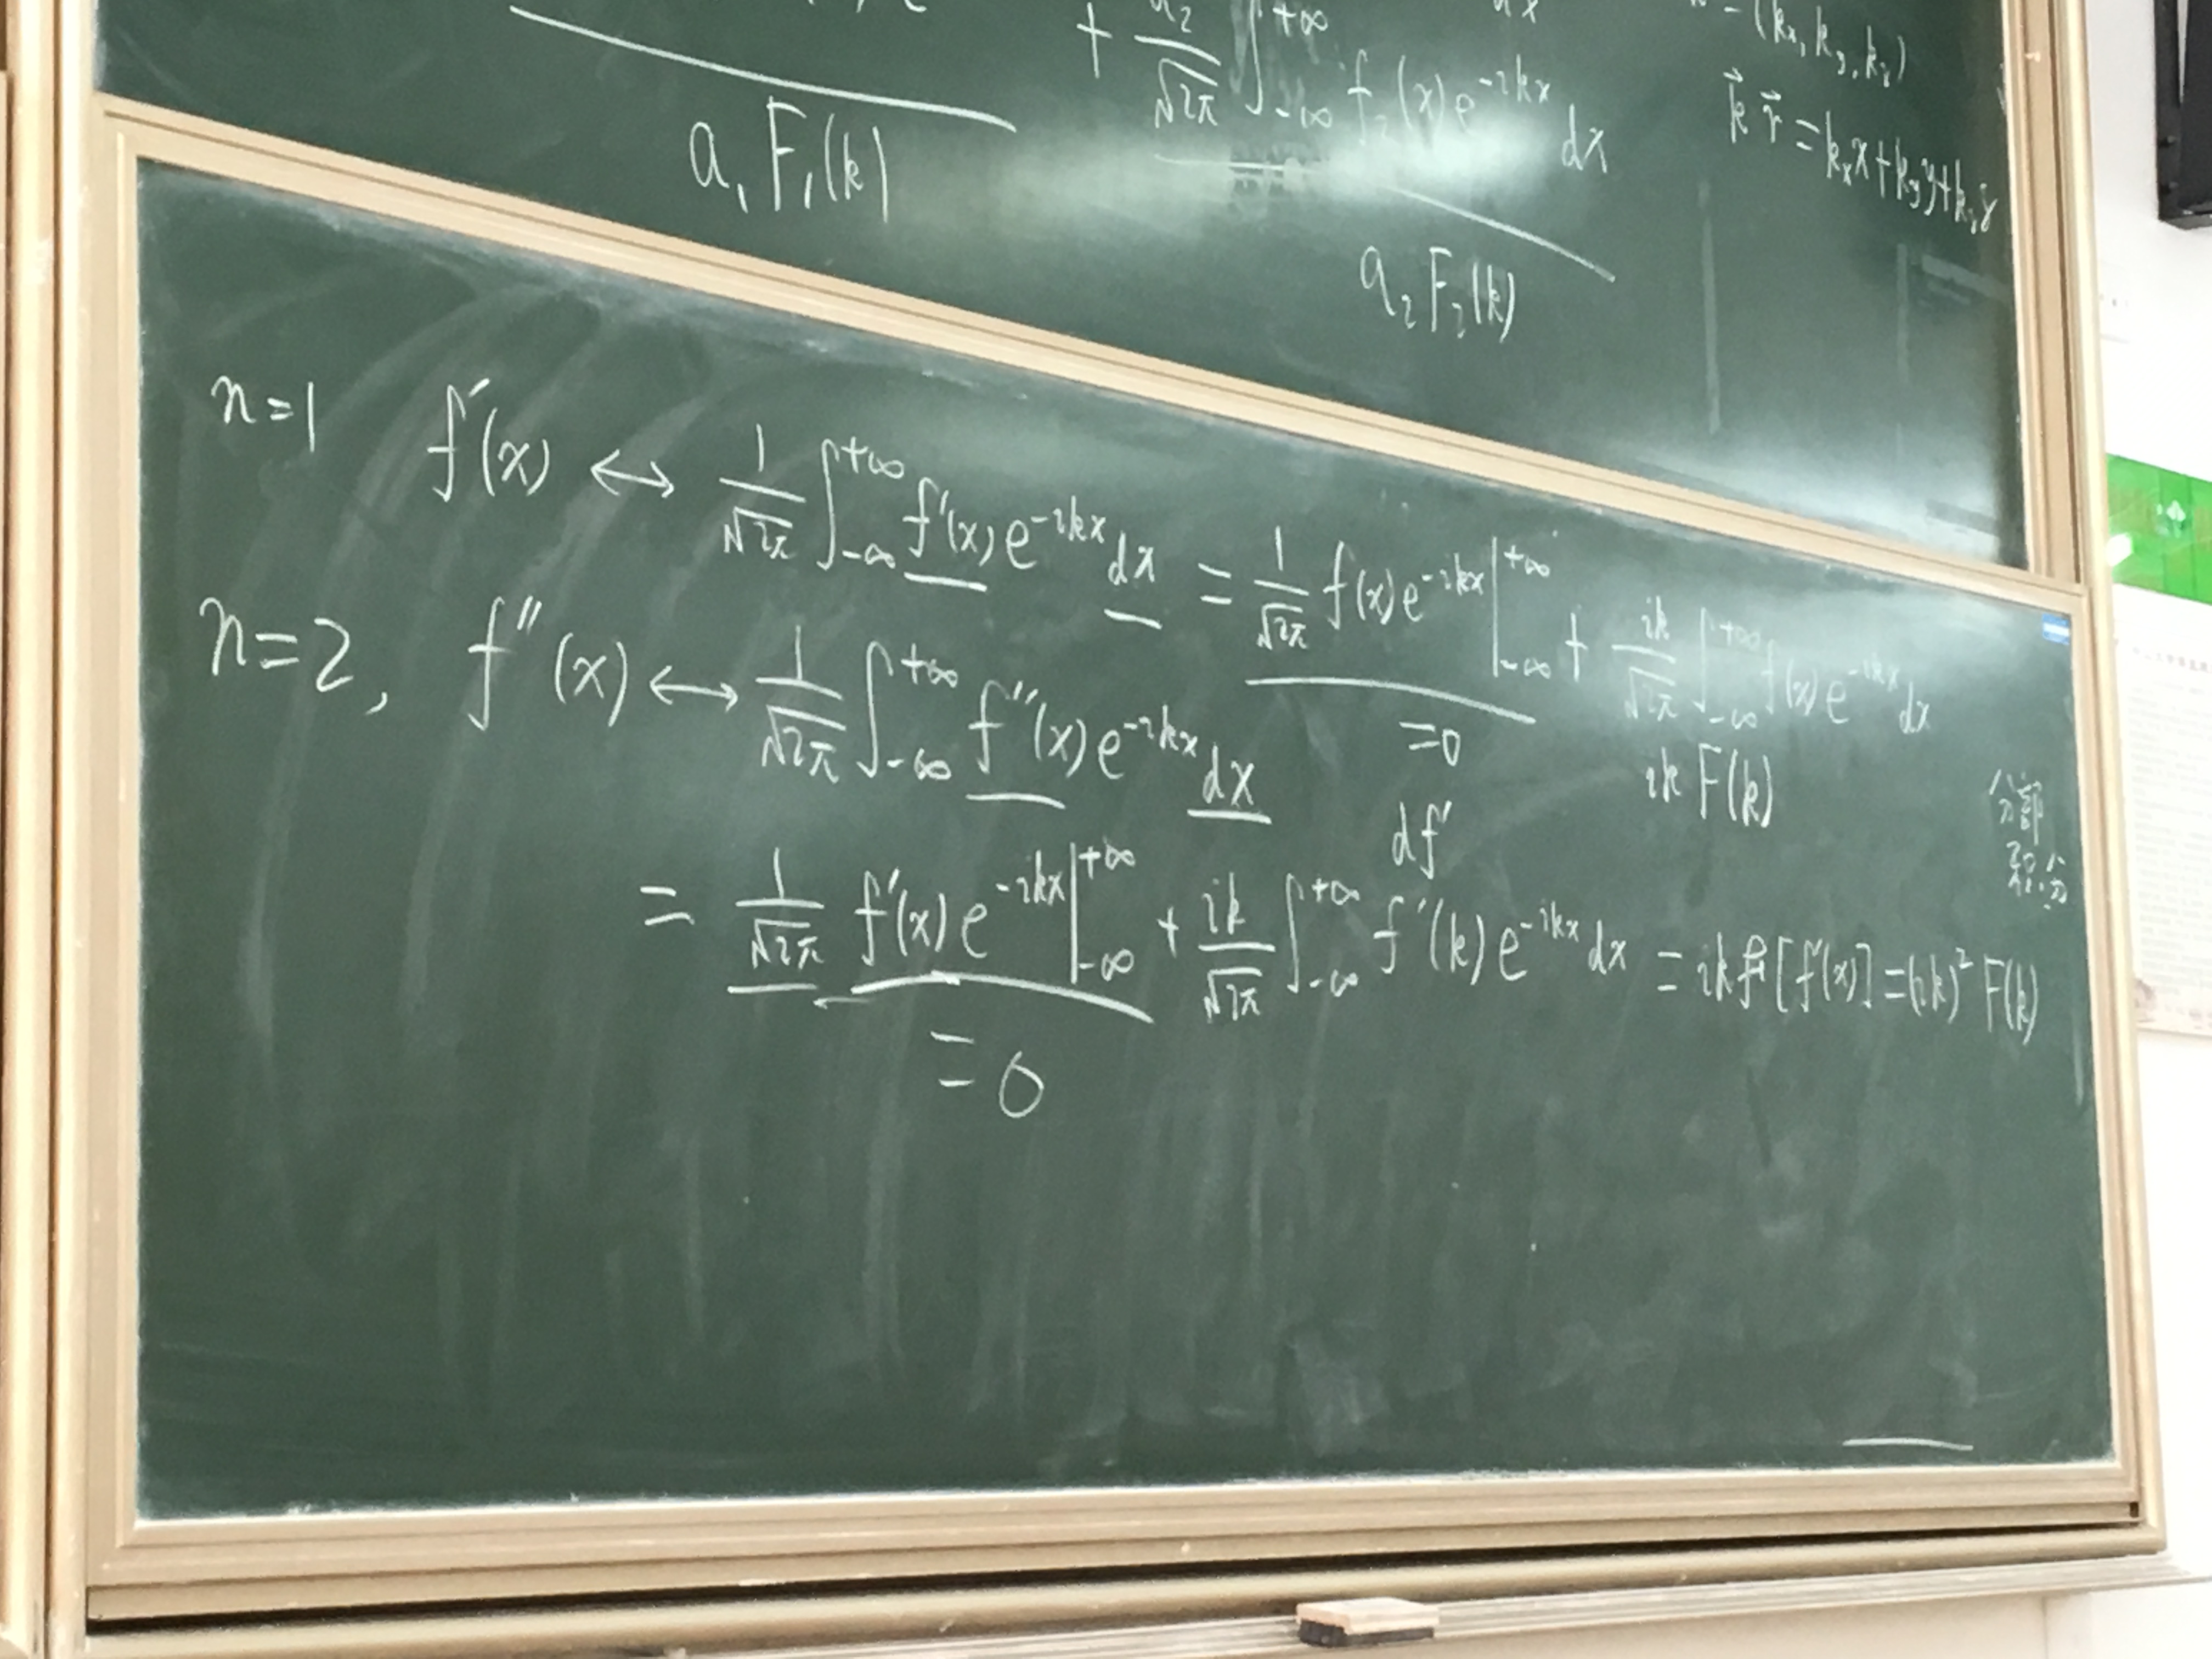 + a₂/√2π ∫_{-∞}^{+∞} f₂(x) e^{-ikx} dx
a₁F₁(k)
a₂F₂(k)
(kx, ky, kz)
k⃗ r⃗ = kxx + kyy + kzz
n=1 f′(x) ↔ 1/√2π ∫_{-∞}^{+∞} f′(x) e^{-ikx} dx = 1/√2π f(x) e^{-ikx} |_{-∞}^{+∞} + ik/√2π ∫_{-∞}^{+∞} f(x) e^{-ikx} dx
=0
ik F(k)
n=2, f″(x) ↔ 1/√2π ∫_{-∞}^{+∞} f″(x) e^{-ikx} dx
df′
分部
积分
= 1/√2π f′(x) e^{-ikx} |_{-∞}^{+∞} + ik/√2π ∫_{-∞}^{+∞} f′(k) e^{-ikx} dx = ik F[f′(x)] = (ik)² F(k)
= 0